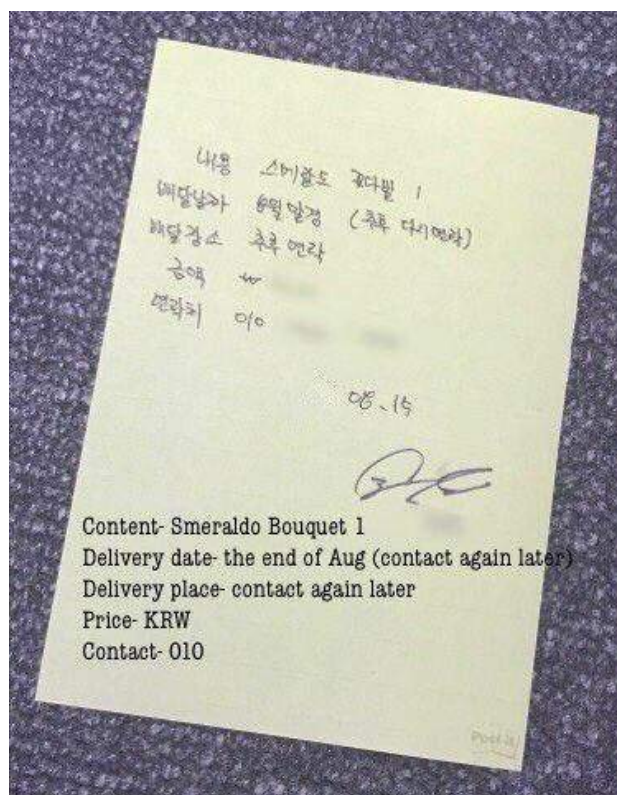 내용 스메랄도 꽃다발 1
배달날짜 8월말경 (추후 다시연락)
배달장소 추후 연락
금액 ₩
연락처 010
08.15
Content- Smeraldo Bouquet 1
Delivery date- the end of Aug (contact again later)
Delivery place- contact again later
Price- KRW
Contact- 010
Post-it